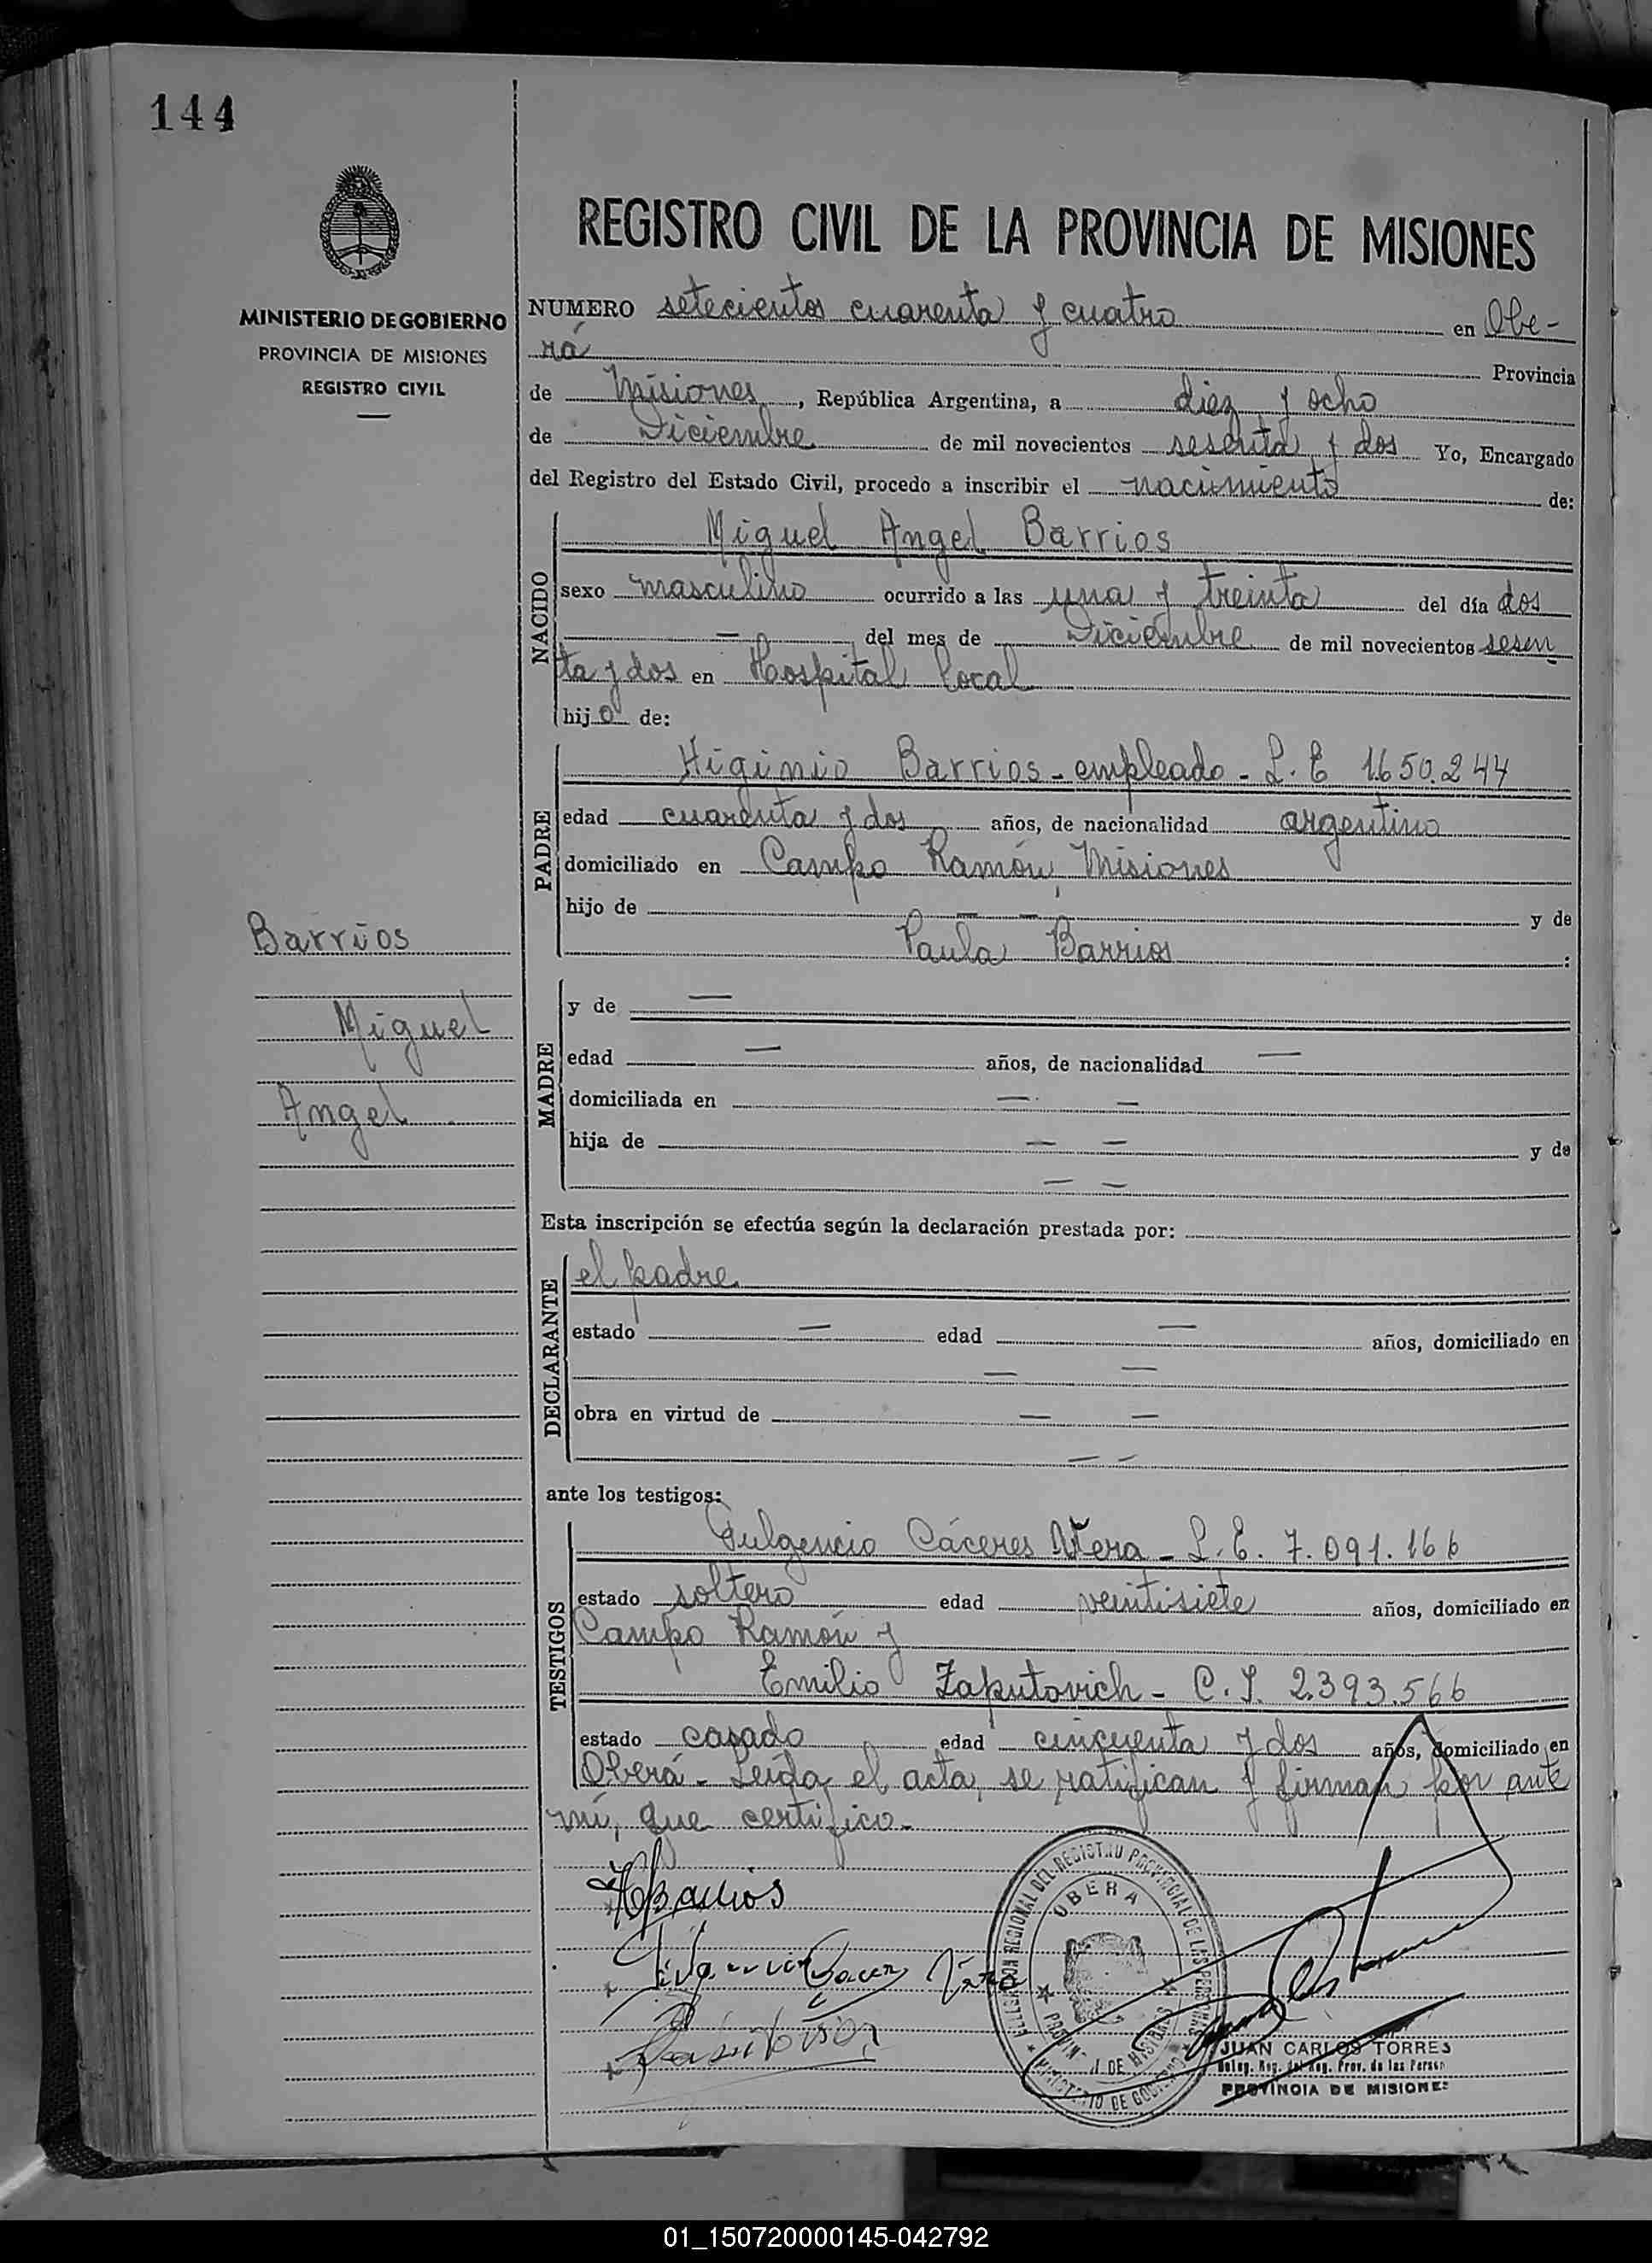 144
REGISTRO CIVIL DE LA PROVINCIA DE MISIONES
MINISTERIO DE GOBIERNO
PROVINCIA DE MISIONES
REGISTRO CIVIL
NUMERO setecientos cuarenta y cuatro en Obe-
rá Provincia
de Misiones, República Argentina, a diez y ocho
de Diciembre de mil novecientos sesenta y dos Yo, Encargado
del Registro del Estado Civil, procedo a inscribir el nacimiento de:
NACIDO
Miguel Angel Barrios
sexo masculino ocurrido a las una y treinta del día dos
— del mes de Diciembre de mil novecientos sesen
ta y dos en Hospital local
hijo de:
PADRE
Higinio Barrios - empleado - L. E 1.650.244
edad cuarenta y dos años, de nacionalidad argentino
domiciliado en Campo Ramón, Misiones
hijo de — — y de
Paula Barrios :
Barrios
Miguel
Angel
MADRE
y de —
edad — años, de nacionalidad —
domiciliada en — —
hija de — — y de
— —
Esta inscripción se efectúa según la declaración prestada por:
DECLARANTE
el padre
estado — edad — años, domiciliado en
— —
obra en virtud de — —
— —
ante los testigos:
TESTIGOS
Fulgencio Cáceres Vera - L. E. 7.091.166
estado soltero edad veintisiete años, domiciliado en
Campo Ramón y
Emilio Zaputovich - C. I. 2.393.566
estado casado edad cincuenta y dos años, domiciliado en
Oberá - Leída el acta, se ratifican y firman por ante
mí, que certifico.
HBarrios
OBERA
JUAN CARLOS TORRES
Deleg. Reg. del Reg. Prov. de las Person
PROVINCIA DE MISIONES
01_150720000145-042792